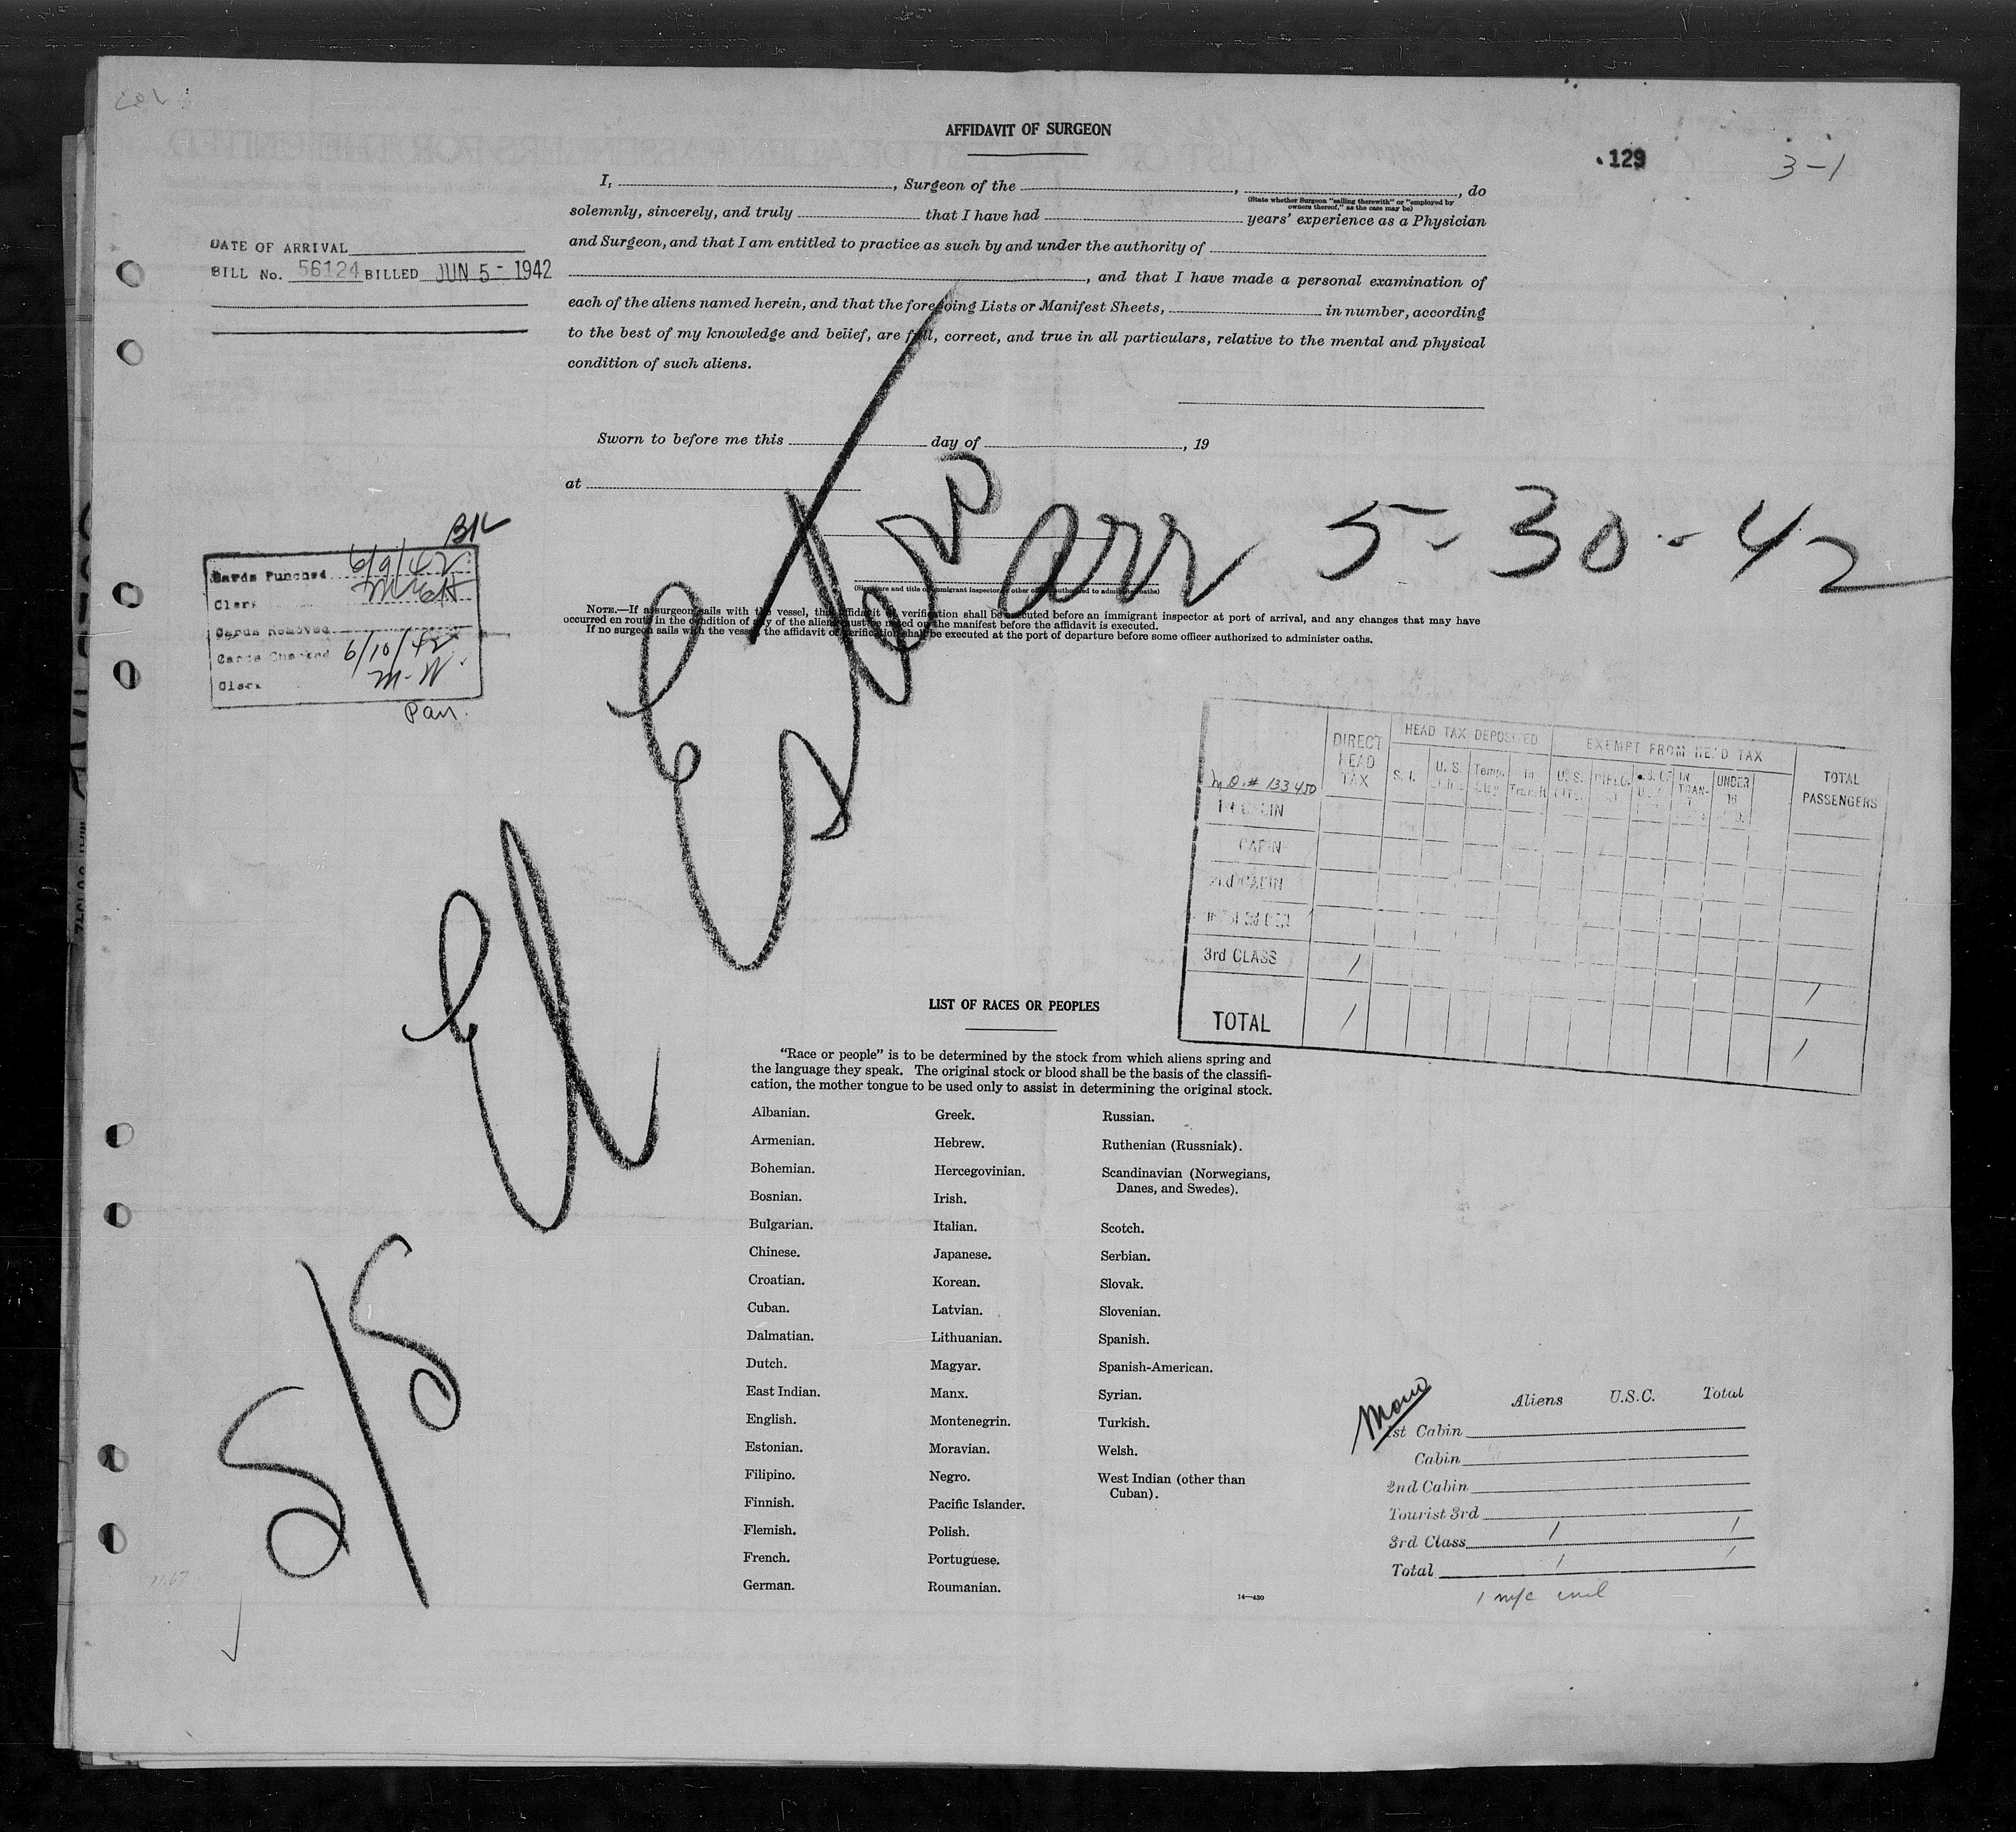 AFFIDAVIT OF SURGEON
129
3-1
I, , Surgeon of the , , do
(State whether Surgeon "sailing therewith" or "employed by
owners thereof," as the case may be)
solemnly, sincerely, and truly that I have had years' experience as a Physician
and Surgeon, and that I am entitled to practice as such by and under the authority of
, and that I have made a personal examination of
each of the aliens named herein, and that the foregoing Lists or Manifest Sheets, in number, according
to the best of my knowledge and belief, are full, correct, and true in all particulars, relative to the mental and physical
condition of such aliens.
DATE OF ARRIVAL
BILL No. 56124 BILLED JUN 5 - 1942
Sworn to before me this day of , 19
at
(Signature and title of immigrant inspector or other officer authorized to administer oaths)
NOTE.—If a surgeon sails with the vessel, this affidavit of verification shall be executed before an immigrant inspector at port of arrival, and any changes that may have
occurred en route in the condition of any of the aliens must be noted on the manifest before the affidavit is executed.
If no surgeon sails with the vessel, the affidavit of verification shall be executed at the port of departure before some officer authorized to administer oaths.
Cards Punched 6/9/42
Clerk
Cards Removed
Cards Checked 6/10/42
Clerk M-W
Pan.
S/S El Estero arr 5-30-42
M.O. # 133450
DIRECT HEAD TAX
HEAD TAX DEPOSITED
EXEMPT FROM HEAD TAX
TOTAL PASSENGERS
S. I.
U. S.
Temp.
In Transit
U. S.
IN TRAN-
UNDER 16
CABIN
2nd CABIN
3rd CLASS 1 1
TOTAL 1 1
LIST OF RACES OR PEOPLES
"Race or people" is to be determined by the stock from which aliens spring and
the language they speak. The original stock or blood shall be the basis of the classifi-
cation, the mother tongue to be used only to assist in determining the original stock.
Albanian.
Armenian.
Bohemian.
Bosnian.
Bulgarian.
Chinese.
Croatian.
Cuban.
Dalmatian.
Dutch.
East Indian.
English.
Estonian.
Filipino.
Finnish.
Flemish.
French.
German.
Greek.
Hebrew.
Hercegovinian.
Irish.
Italian.
Japanese.
Korean.
Latvian.
Lithuanian.
Magyar.
Manx.
Montenegrin.
Moravian.
Negro.
Pacific Islander.
Polish.
Portuguese.
Roumanian.
Russian.
Ruthenian (Russniak).
Scandinavian (Norwegians,
Danes, and Swedes).
Scotch.
Serbian.
Slovak.
Slovenian.
Spanish.
Spanish-American.
Syrian.
Turkish.
Welsh.
West Indian (other than
Cuban).
14—430
Aliens U.S.C. Total
1st Cabin
Cabin
2nd Cabin
Tourist 3rd
3rd Class 1 1
Total 1 1